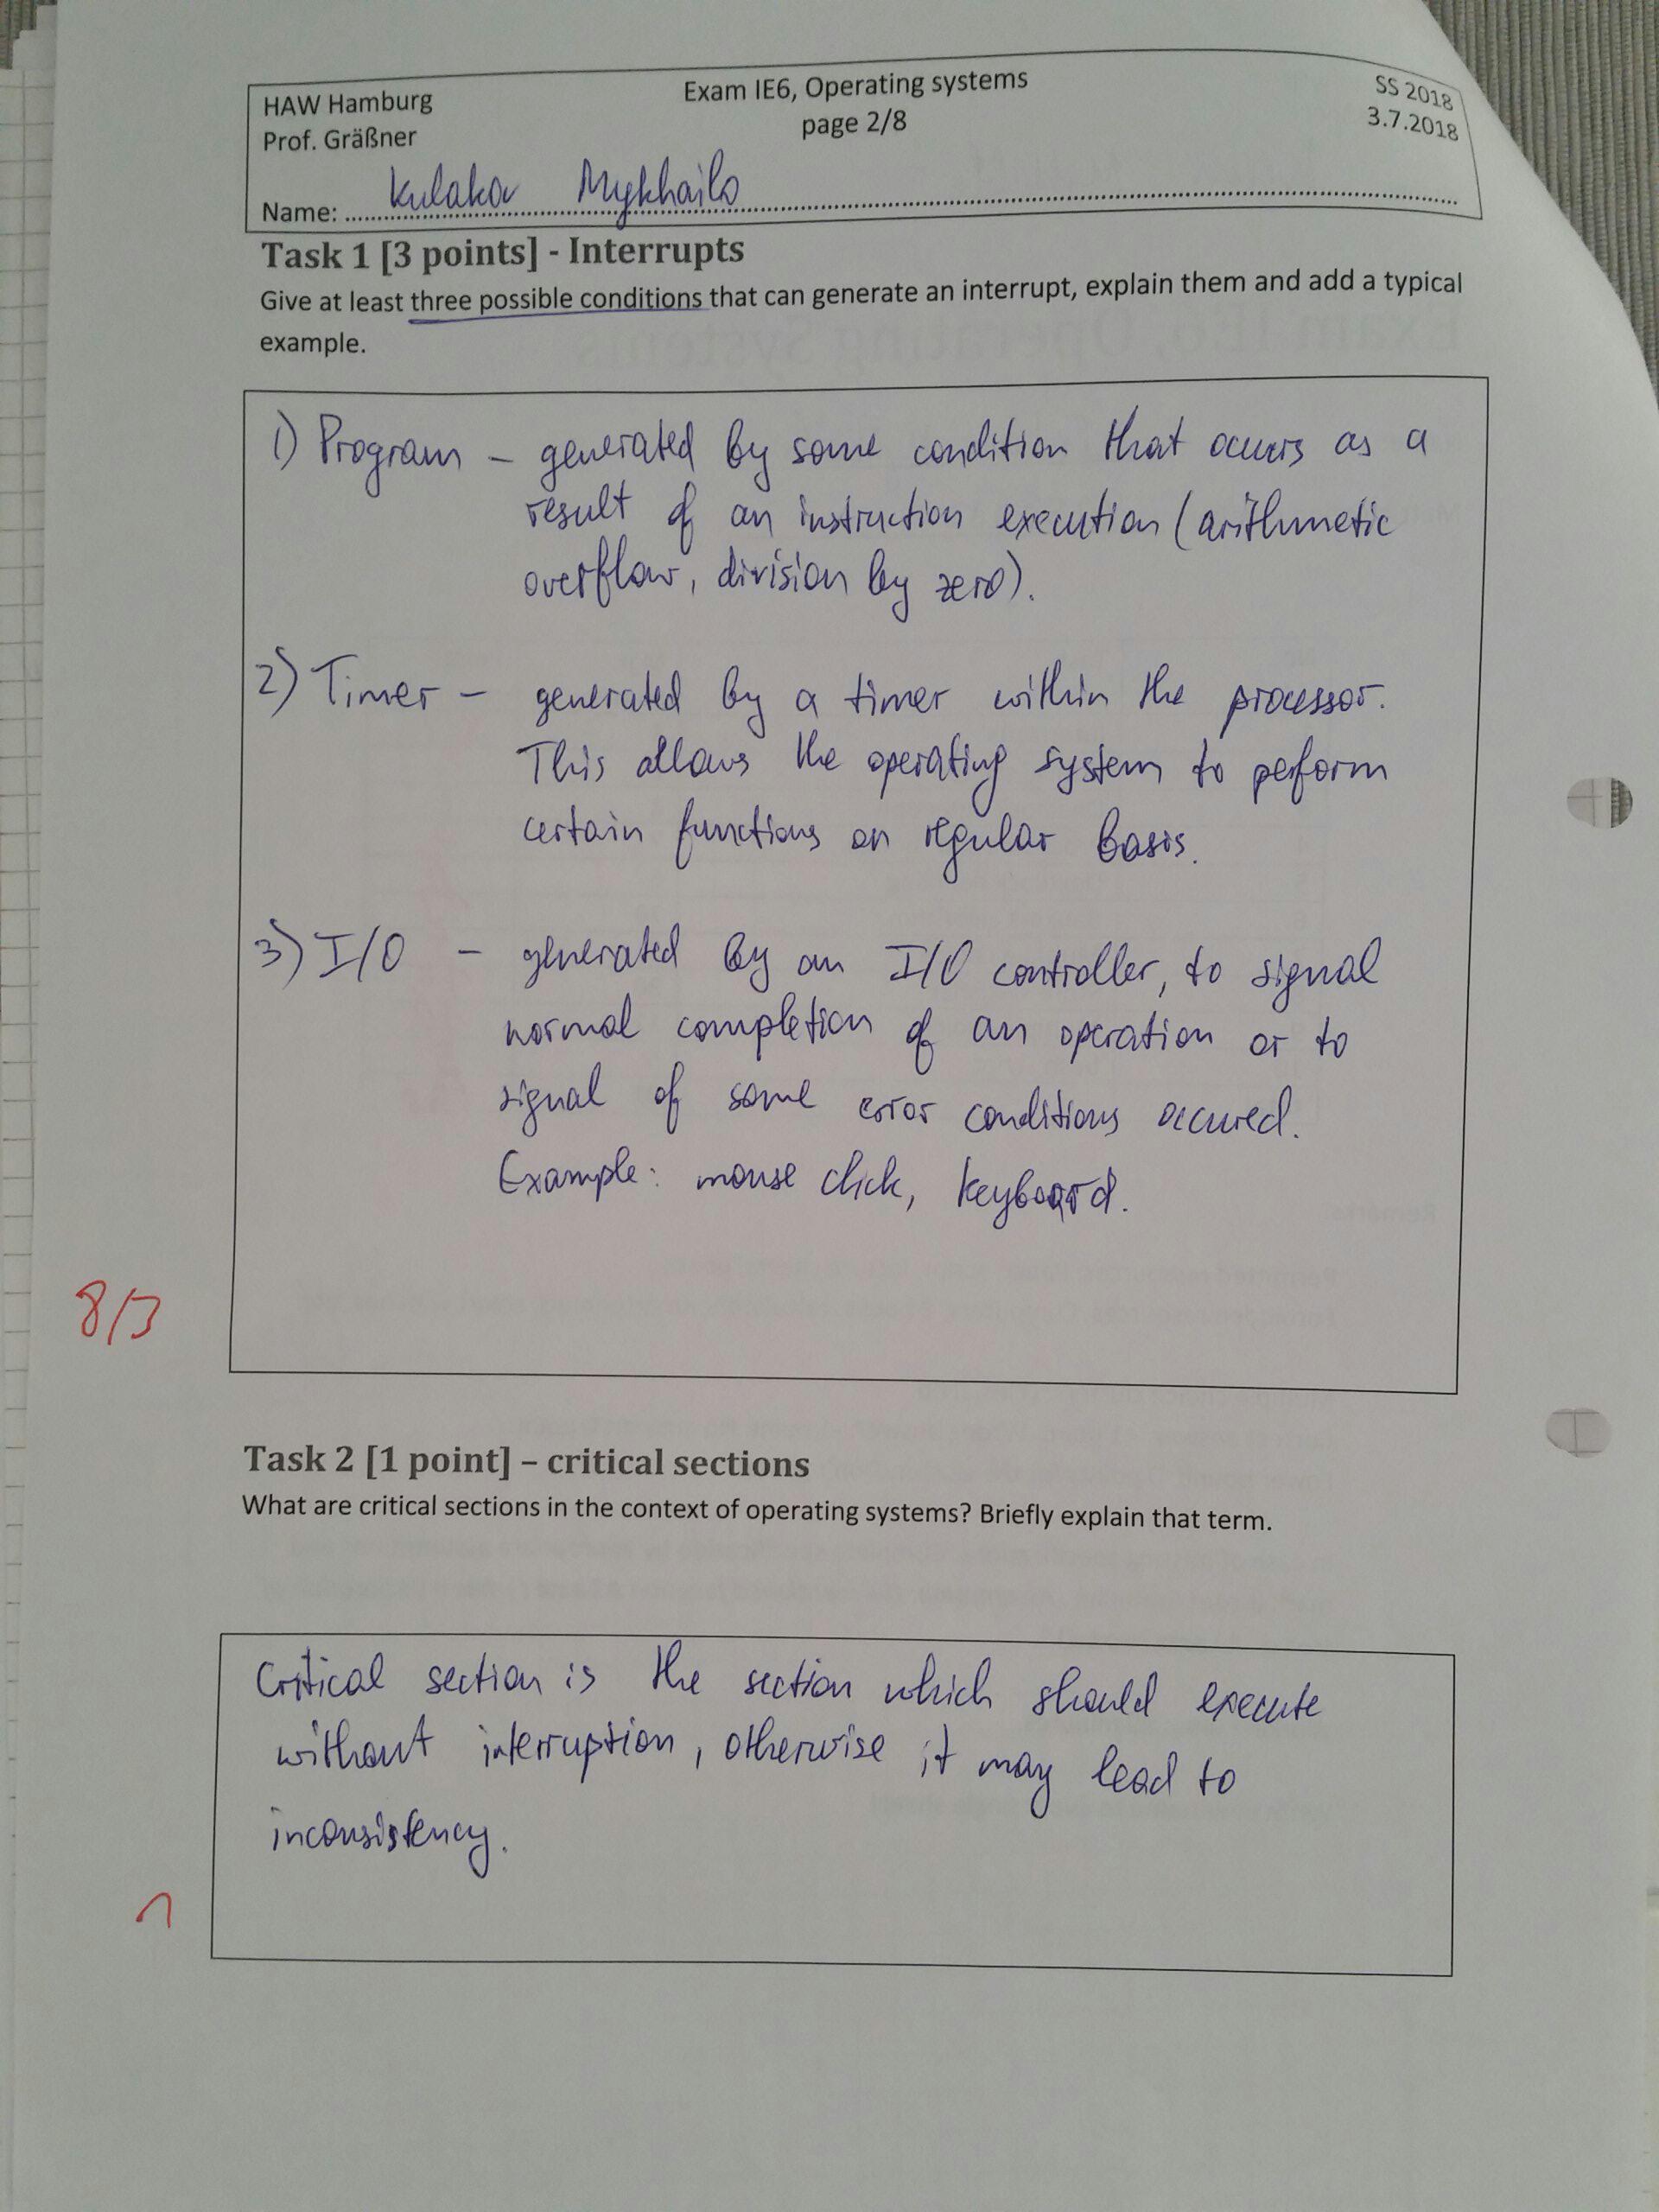 HAW Hamburg
Exam IE6, Operating systems
SS 2018
Prof. Gräßner
page 2/8
3.7.2018
Name: Kulakov Mykhailo
Task 1 [3 points] - Interrupts
Give at least three possible conditions that can generate an interrupt, explain them and add a typical
example.
1) Program – generated by some condition that occurs as a
result of an instruction execution (arithmetic
overflow, division by zero).
2) Timer – generated by a timer within the processor.
This allows the operating system to perform
certain functions on regular basis.
3) I/O – generated by an I/O controller, to signal
normal completion of an operation or to
signal of some error conditions occured.
Example: mouse click, keyboard.
8/3
Task 2 [1 point] – critical sections
What are critical sections in the context of operating systems? Briefly explain that term.
Critical section is the section which should execute
without interruption, otherwise it may lead to
inconsistency.
1